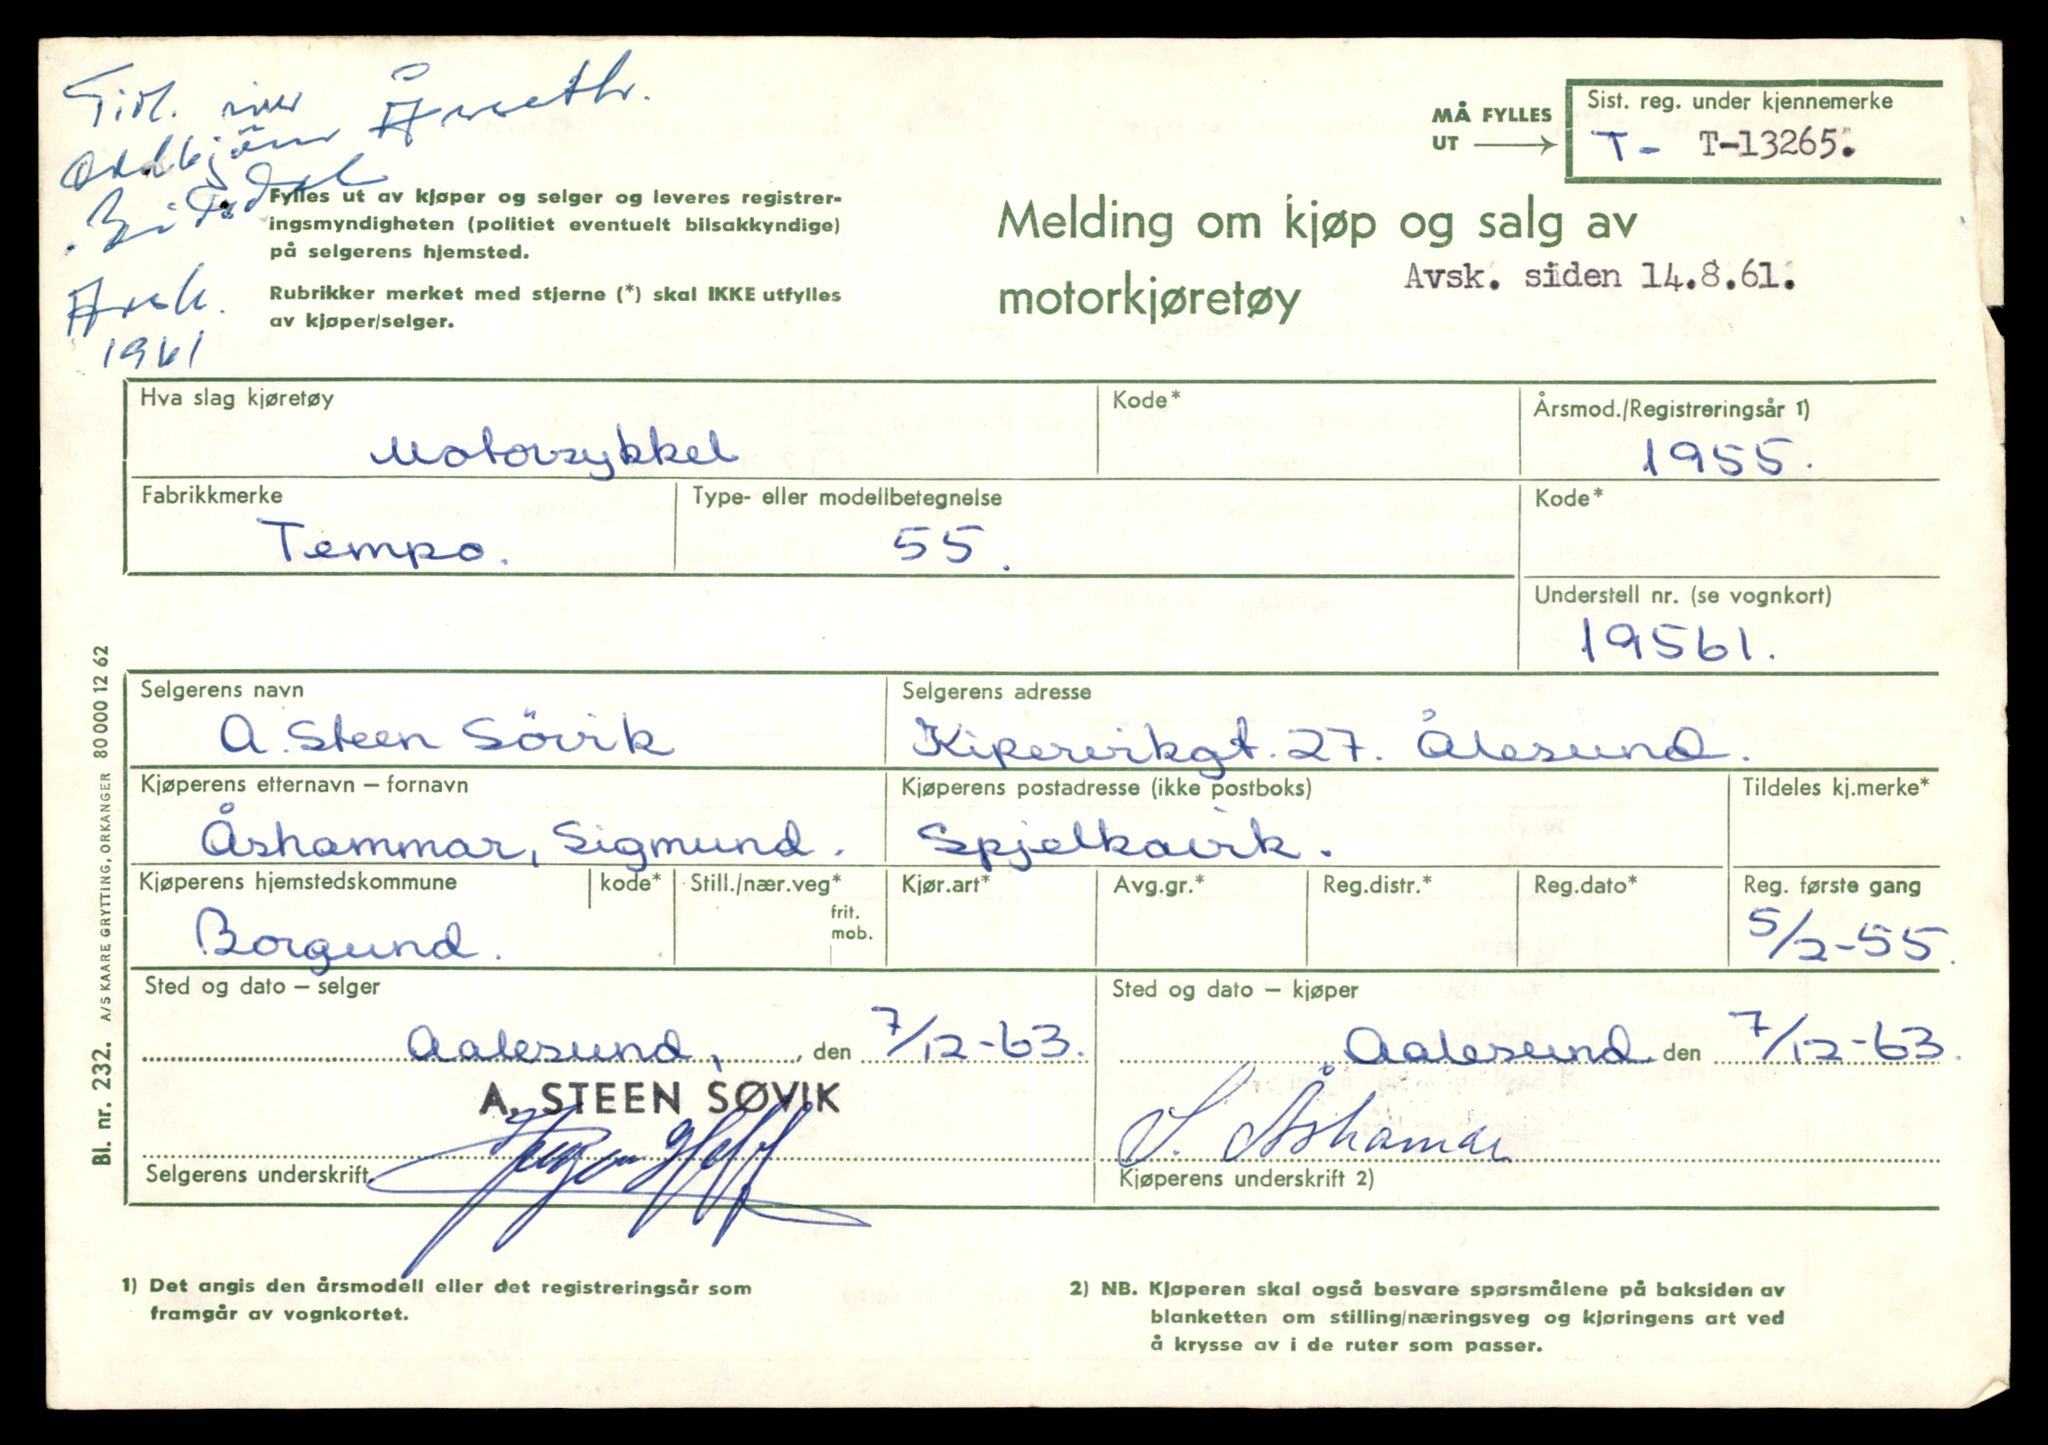 Tidl. Årseth.
Oddbjörn
Bildal
Avsk.
1961
MÅ FYLLES
UT
Sist. reg. under kjennemerke
T- T-13265.
Fylles ut av kjøper og selger og leveres registrer-
ingsmyndigheten (politiet eventuelt bilsakkyndige)
på selgerens hjemsted.
Rubrikker merket med stjerne (*) skal IKKE utfylles
av kjøper/selger.
Melding om kjøp og salg av
motorkjøretøy
Avsk. siden 14.8.61.
Hva slag kjøretøy
Kode*
Årsmod./Registreringsår 1)
Motorsykkel
1955.
Fabrikkmerke
Type- eller modellbetegnelse
Kode*
Tempo.
55.
Understell nr. (se vognkort)
19561.
Selgerens navn
Selgerens adresse
A. Steen Sövik
Kipervikgt. 27. Ålesund.
Kjøperens etternavn – fornavn
Kjøperens postadresse (ikke postboks)
Tildeles kj.merke*
Åshammar, Sigmund.
Spjelkavik.
Kjøperens hjemstedskommune
kode*
Still./nær.veg*
frit.
mob.
Kjør.art*
Avg.gr.*
Reg.distr.*
Reg.dato*
Reg. første gang
Borgund.
5/2-55.
Sted og dato – selger
Sted og dato – kjøper
Aalesund, den 7/12-63.
Aalesund den 7/12-63.
A. STEEN SØVIK
S. Åshamar
Selgerens underskrift
Kjøperens underskrift 2)
1) Det angis den årsmodell eller det registreringsår som
framgår av vognkortet.
2) NB. Kjøperen skal også besvare spørsmålene på baksiden av
blanketten om stilling/næringsveg og kjøringens art ved
å krysse av i de ruter som passer.
Bl. nr. 232. A/S KAARE GRYTTING, ORKANGER 80000 12 62